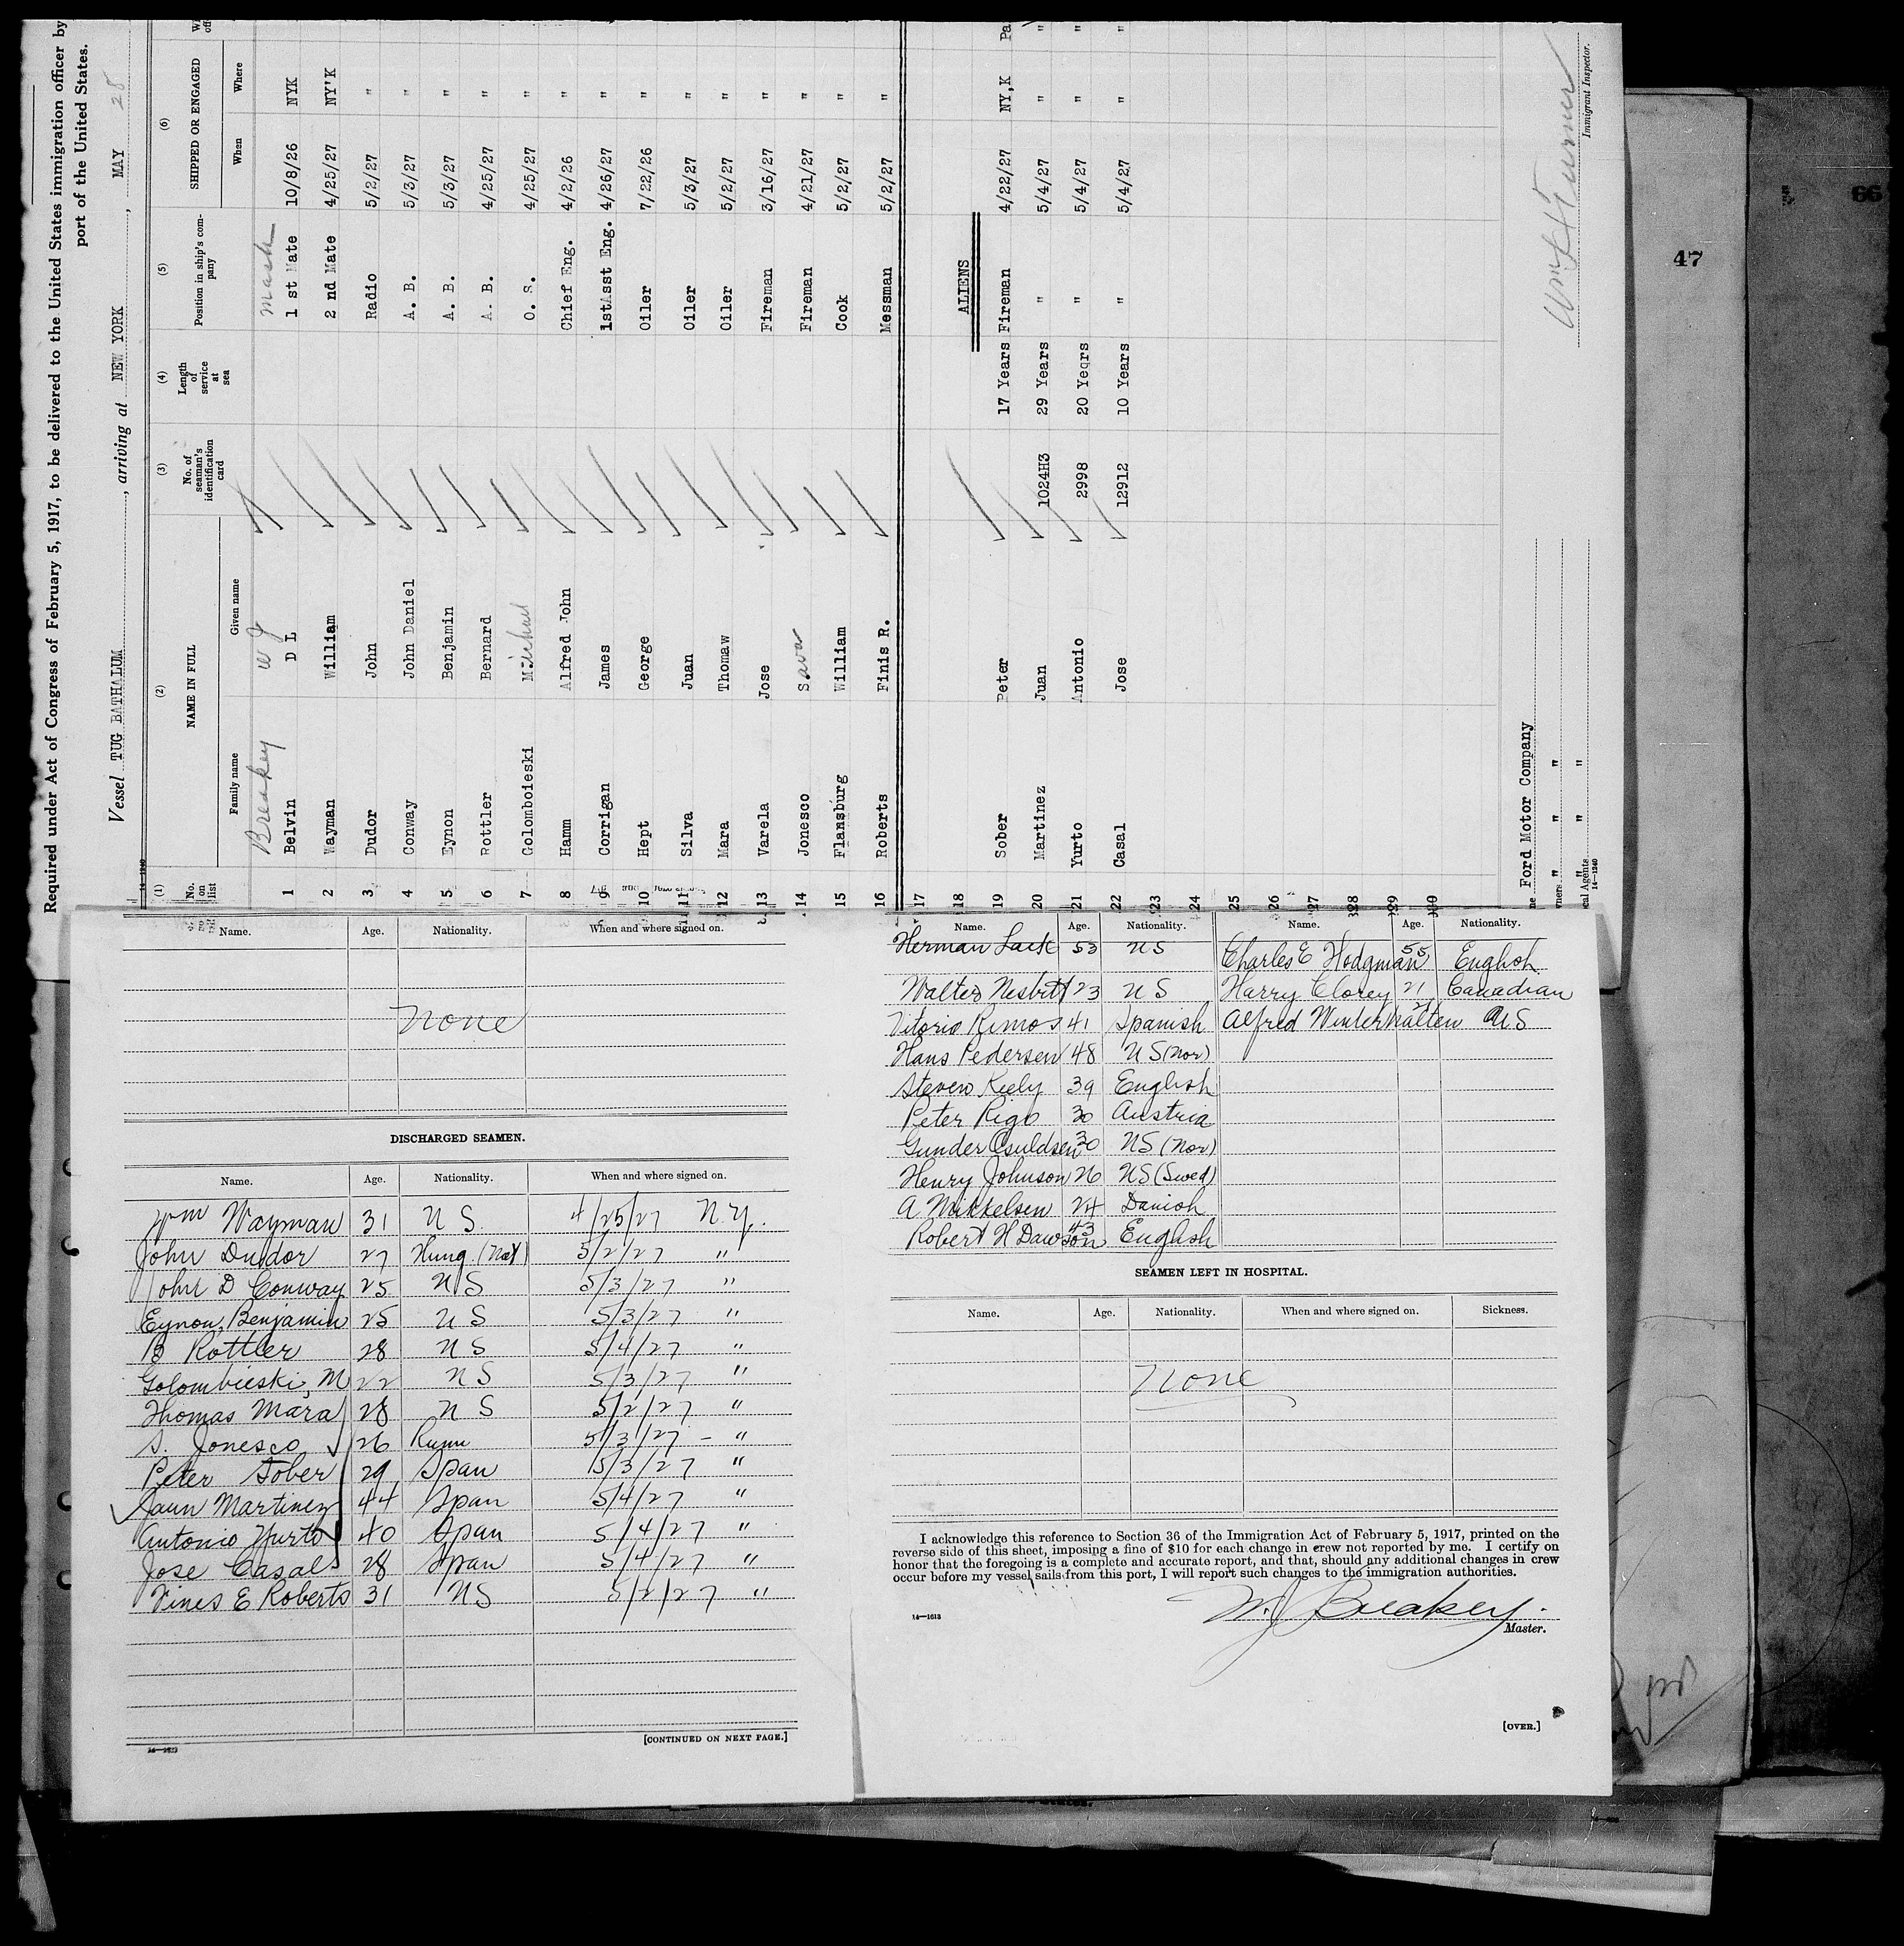 Required under Act of Congress of February 5, 1917, to be delivered to the United States immigration officer by
port of the United States.
Vessel TUG BATHALUM, arriving at NEW YORK, MAY 28
(1) (2) (3) (4) (5) (6)
No. on list NAME IN FULL No. of seaman's identification card Length of service at sea Position in ship's company SHIPPED OR ENGAGED
Family name Given name When Where
Breakey W J
1 Belvin D L 1 st Mate 10/8/26 NYK
2 Wayman William 2 nd Mate 4/25/27 NY'K
3 Dudor John Radio 5/2/27 "
4 Conway John Daniel A. B. 5/3/27 "
5 Eynon Benjamin A. B. 5/3/27 "
6 Rottler Bernard A. B. 4/25/27 "
7 Golomboieski Michael O. S. 4/25/27 "
8 Hamm Alfred John Chief Eng. 4/2/26 "
9 Corrigan James 1stAsst Eng. 4/26/27 "
10 Hept George Oiler 7/22/26 "
11 Silva Juan Oiler 5/3/27 "
12 Mara Thomaw Oiler 5/2/27 "
13 Varela Jose Fireman 3/16/27 "
14 Jonesco Savar Fireman 4/21/27 "
15 Flansburg William Cook 5/2/27 "
16 Roberts Finis R. Messman 5/2/27 "
17
18 ALIENS
19 Sober Peter 17 Years Fireman 4/22/27 NY,K Pa
20 Martinez Juan 1024H3 29 Years " 5/4/27 " "
21 Yurto Antonio 2998 20 Yeqrs " 5/4/27 " "
22 Casal Jose 12912 10 Years " 5/4/27 " "
23
24
25
26
27
28
29
30
Ford Motor Company
wners " " "
cal Agents " " "
14—1240
Immigrant Inspector.
47
66
Name. Age. Nationality. When and where signed on.
None
DISCHARGED SEAMEN.
Name. Age. Nationality. When and where signed on.
Wm Wayman 31 U S 4/25/27 N.Y.
John Dudor 27 Hung (Nat) 5/2/27 "
John D Conway 25 U S 5/3/27 "
Eynon, Benjamin 25 U S 5/3/27 "
B Rottler 28 U S 5/4/27 "
Golombieski, M 22 U S 5/3/27 "
Thomas Mara 28 U S 5/2/27 "
S. Jonesco 26 Rum 5/3/27 - "
Peter Sober 29 Span 5/3/27 "
Jaun Martinez 44 Span 5/4/27 "
Antonio Yurto 40 Span 5/4/27 "
Jose Casal 28 Span 5/4/27 "
Vines E Roberts 31 US 5/2/27 "
[CONTINUED ON NEXT PAGE.]
Name. Age. Nationality. Name. Age. Nationality.
Herman 53 U S Charles E Hodgman 55 English
Walter Nesbitt 23 U S Harry Clorey 21 Canadian
Vitorio Rimos 41 Spanish Alfred Winterhalten 21 U S
Hans Pedersen 48 U S (Nor)
Steven Kiely 39 English
Peter Rigo 30 Austria
Gunder Osuldsen 30 US (Nor)
Henry Johnson 26 US (Swed)
A Mikkelsen 24 Danish
Robert H Dawson 43 English
SEAMEN LEFT IN HOSPITAL.
Name. Age. Nationality. When and where signed on. Sickness.
None
I acknowledge this reference to Section 36 of the Immigration Act of February 5, 1917, printed on the
reverse side of this sheet, imposing a fine of $10 for each change in crew not reported by me. I certify on
honor that the foregoing is a complete and accurate report, and that, should any additional changes in crew
occur before my vessel sails from this port, I will report such changes to the immigration authorities.
W. J. Breakey.
14—1613
Master.
[OVER.]